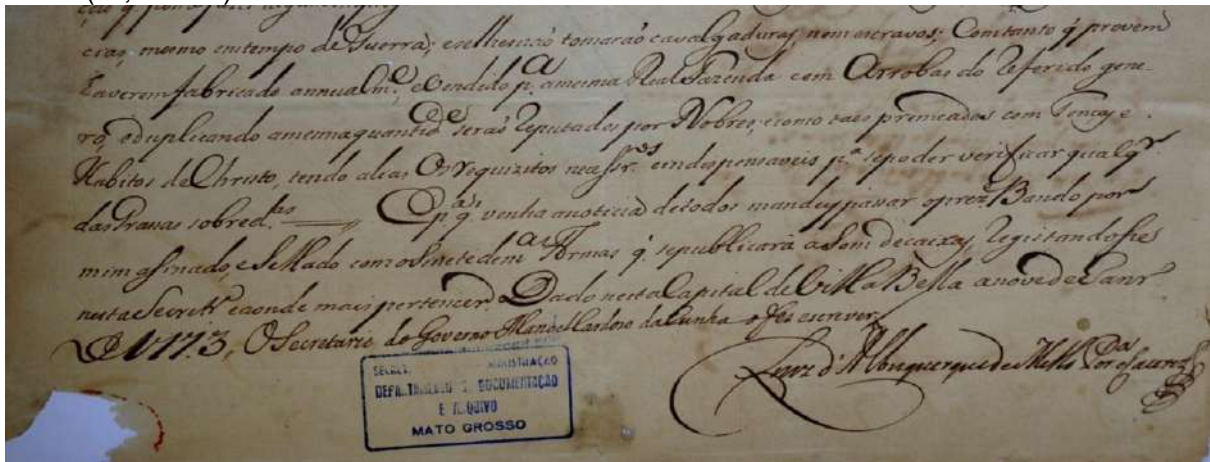 cias, mesmo em tempo de Guerra; e selhes não tomarão cavalgaduras, nem escravos; Com tanto q̃ provem
haverem fabricado annualm.e, e Vendido p.a a mesma Real Fazenda cem Arrobas do referido gene-
ro, e duplicando amesma quantid.e serão reputados por Nobres, como taes premeados com Tenças e
Habitos de Christo, tendo aliás Os requizitos necessr.os e indespensaveis p.a sepoder verificar qualq.r
das Graças sobred.tas E p.a q̃ venha anoticia de todos mandey passar oprez.e Bando por
mim asinado, e Sellado com o Sinete de m.as Armas q̃ sepublicará a Som de caixas, Registandose
nesta Secretr.a e aonde mais pertencer. Dado nesta Capital de Villa Bella a nove de Janr.o
D 1773. O Secretario do Governo Manoel Cardoso da Cunha o fez escrever
Luiz d'Albuquerque de Mello Per.a Caceres
DEPARTAMENTO DE DOCUMENTAÇÃO
E ARQUIVO
MATO GROSSO